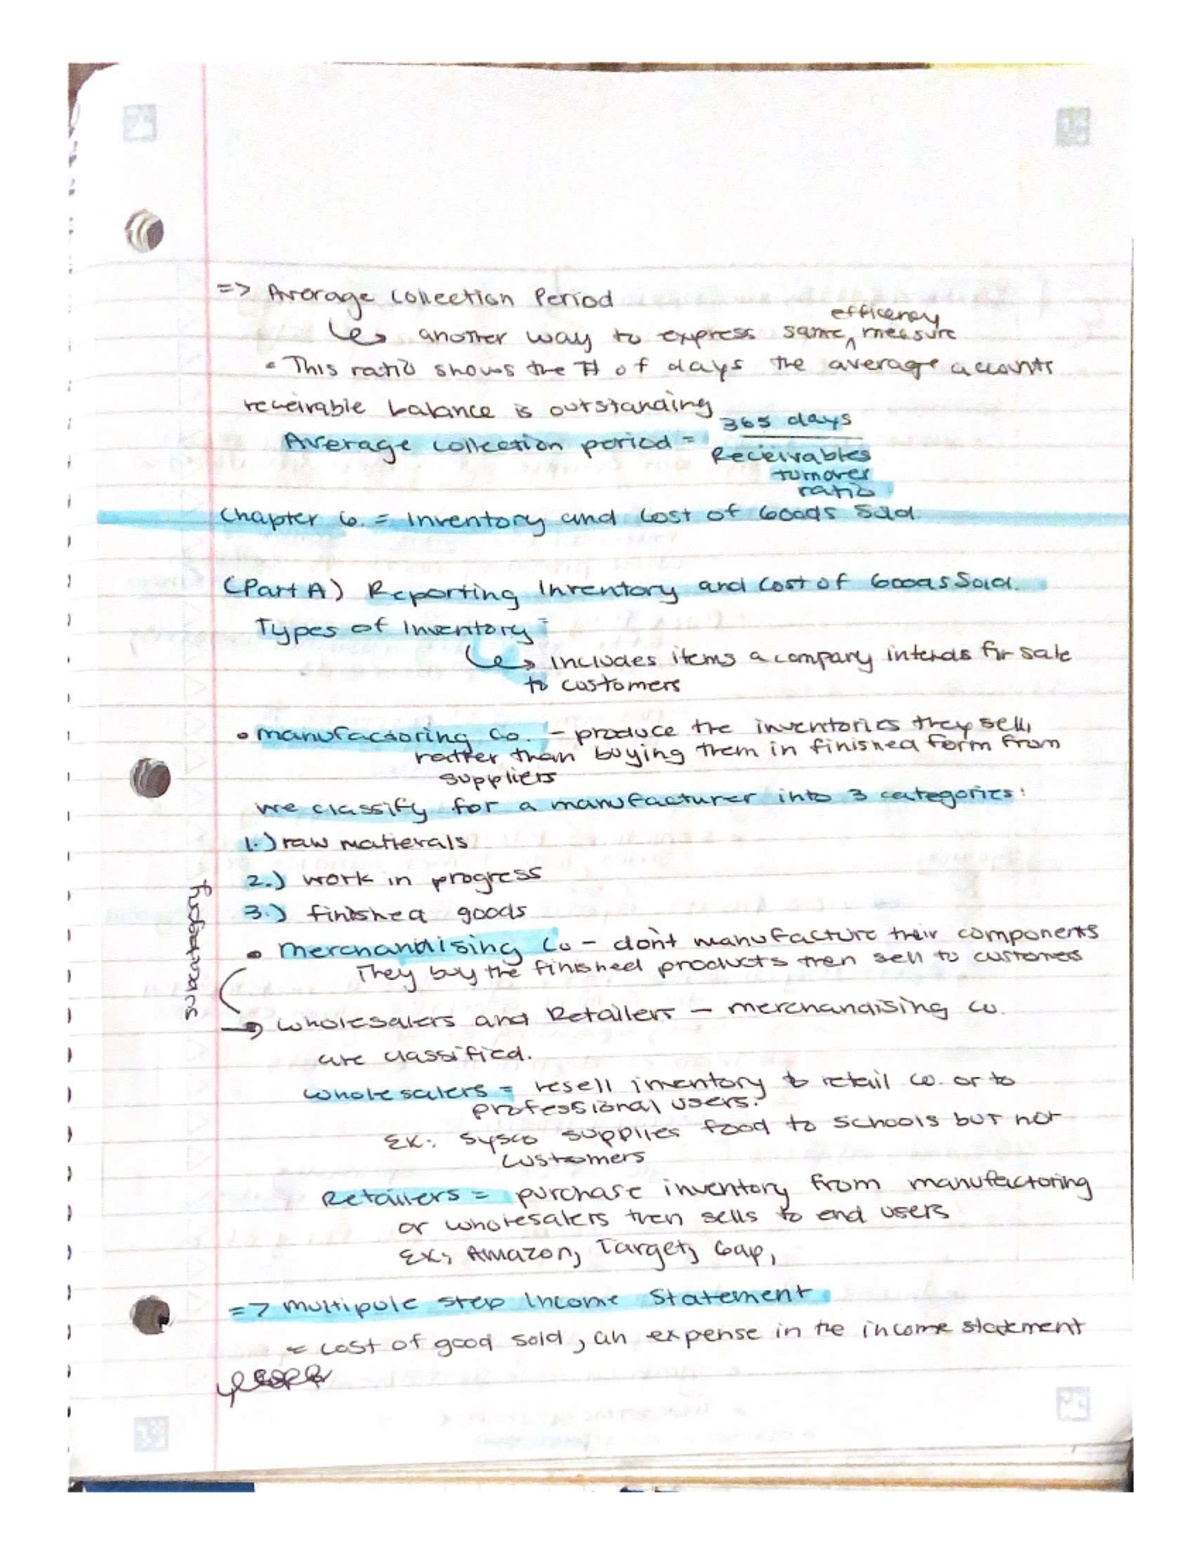 => Average Collection Period
efficency
↳ another way to express same ^ measure
• This ratio shows the # of days the average accounts
receivable balance is outstanding
Average collection period = 365 days
Receivables
turnover
ratio
Chapter 6. = Inventory and Cost of Goods Sold.
(Part A) Reporting Inventory and Cost of Goods Sold.
Types of Inventory =
↳ Includes items a company intends for sale
to customers
• manufactoring Co. - produce the inventories they sell,
rather than buying them in finished form from
suppliers
we classify for a manufacturer into 3 categories:
1.) raw matierals
2.) work in progress
3.) finished goods
• merchandising Co - dont manufacture their components
They buy the finished products then sell to customers
→ wholesalers and Retailers - merchandising co.
are classified.
wholesalers = resell inventory to retail co. or to
professional users.
Ex: Sysco supplies food to schools but not
customers
Retailers = purchase inventory from manufactoring
or wholesalers then sells to end users
Ex: Amazon, Target, Gap,
=> multipule step Income Statement
= cost of good sold, an expense in the income statement